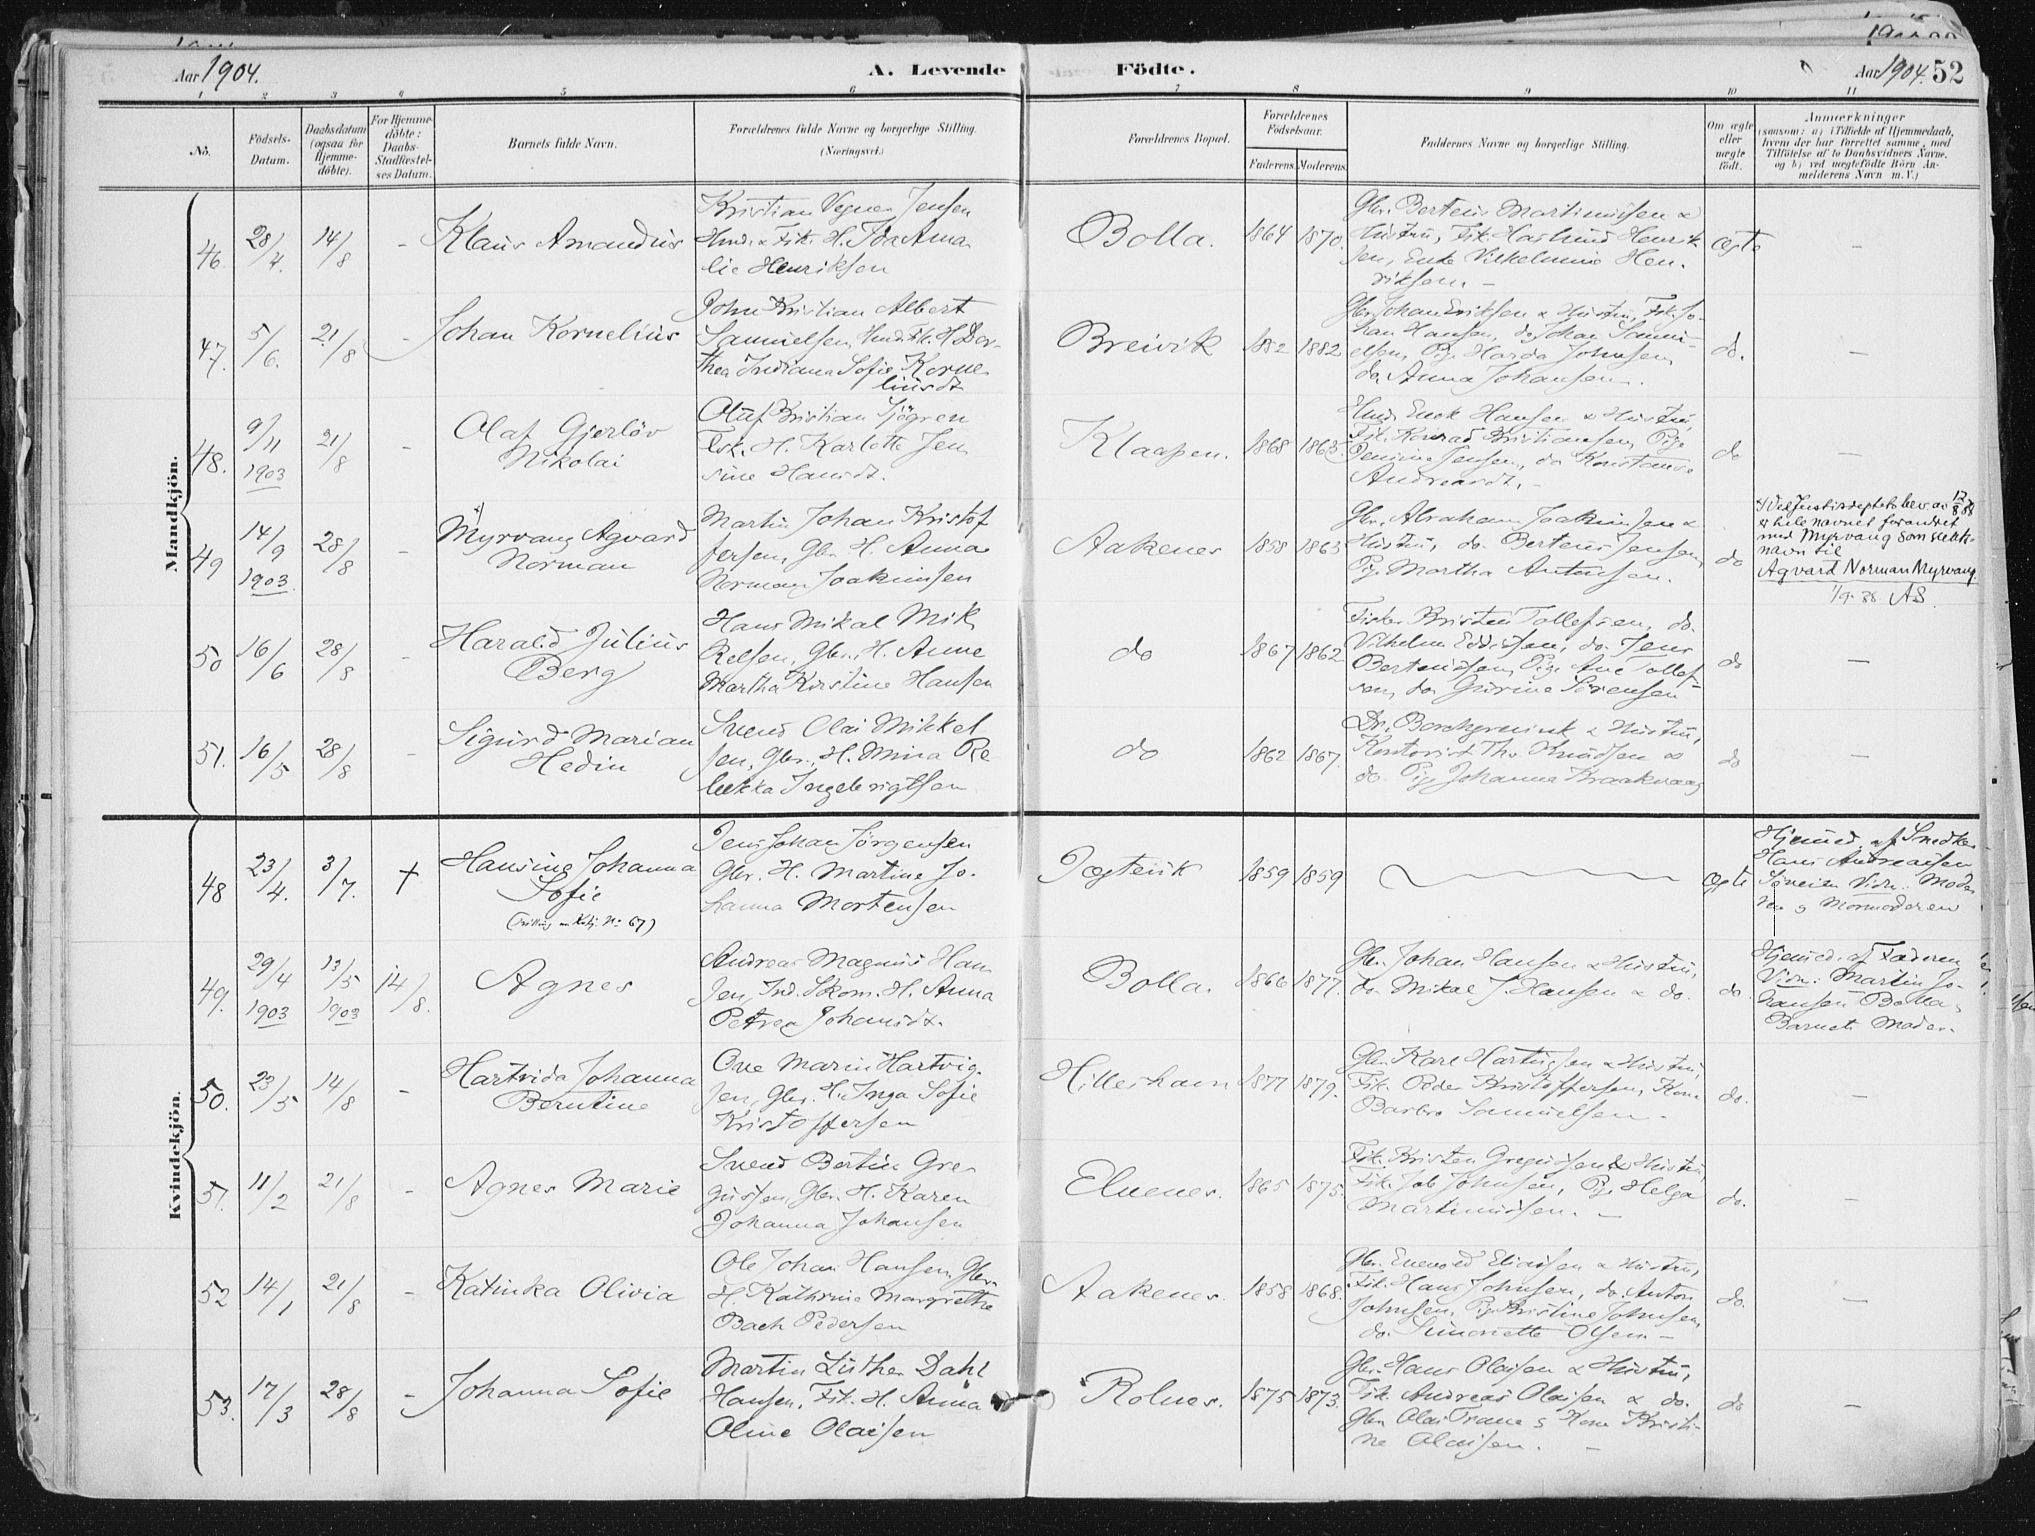 Aar 1904.
A. Levende Födte.
Aar 1904. 52
1 2 3 4 5 6 7 8 9 10 11
No.
Födsels-
Datum.
Daabsdatum
(ogsaa for
Hjemme-
döbte).
For Hjemme-
döbte:
Daabs-
Stadfæstel-
ses Datum.
Barnets fulde Navn.
Forældrenes fulde Navne og borgerlige Stilling.
(Næringsvei.)
Forældrenes Bopæl.
Forældrenes
Födselsaar.
Faderens. Moderens.
Faddernes Navne og borgerlige Stilling.
Om ægte
eller
uægte
födt.
Anmærkninger
(saasom: a) i Tilfælde af Hjemmedaab,
hvem der har forrettet samme, med
Tilföielse af to Daabsvidners Navne,
og b) ved uægtefödte Börn An-
melderens Navn m. V.)
Mandkjön.
46. 28/4. 14/8 - Klaus Amandus
Kristian Vegner Jensen
Hmd. & Fsk. H. Ida Ama
lie Henriksen
Bolla. 1864 1870.
Gbr. Berteus Martinussen &
Hustru, Fsk. Haslund Henrik
sen, Enke Vilhelmine Hen-
riksen. -
ægte -
47. 5/6. 21/8 - Johan Kornelius
John Kristian Albert
Samuelsen, Hmd. Fsk. H. Dor-
thea Indiana Sofie Korne
liusdt.
Breivik 1882 1882
Gbr. Johan Eriksen & Hustru, Fsk. Jo-
han Hansen, do Johan Samu-
elsen, Pig. Harda Johnsen,
do. Anna Johansen.
do. -
48. 9/11 1903 21/8 - Olaf Gjerlöv
Nikolai
Oluf Kristian Sjögren
Fsk. H. Karlotte Jen
sine Hansdt.
Klaapen. 1868 1863.
Hmd. Enok Hansen & Hustru
Fsk. Konrad Kristiansen, Pige
Jensine Jensen, do Konstanse
Andreasdt. -
do -
49 14/9 1903. 28/8 - Myrvang Agvard
Norman
Martin Johan Kristof
fersen, Gbr. H. Anna
Norman Joakimsen
Aakenes 1858 1863
Gbr. Abraham Joakimsen &
Hustru, do. Berteus Jensen,
Pig. Martha Antonsen.
do
Ved Justisdeptets brev av 12/8 38
er hele navnet forandret
med Myrvang som slekts-
navn til
Agvard Norman Myrvang.
1/9-38 AS.
50 16/6 28/8 - Harald Julius
Berg
Hans Mikal Mik
kelsen, Gbr. H. Anne
Martha Kirstine Hansen
do 1867 1862
Fisker Kristen Tollefsen, do.
Vilhelm Eddissen, do. Jens
Berteussen, Pige Ane Tollef-
sen, do Gurine Sörensen
do -
51. 16/5 28/8 - Sigurd Marian
Hedin
Svend Olai Mikkel
sen, Gbr., H. Mina Re-
bekka Ingebrigtsen
do 1862 1867.
Dr. Borchgrevink & Hustru,
Kontorist Th. Knudsen &
do. Pige Johanna Kraakvaag
do -
Kvindekjön.
48 23/4. 3/7. + Hansine Johanna
Sofie
Jens Johan Jörgensen
Gbr. H. Martine Jo-
hanna Mortensen
Jægtevik 1859 1859
ægte
Hjemmed. af Snedker
Hans Andreassen
Vidn.: Mode
ren & Mormoderen
49. 29/4 1903 13/5 1903 14/8. Agnes
Andreas Magnus Han
sen, Ind. Skom. H. Anna
Petrea Johansdt.
Bolla. 1866 1877.
Gbr. Johan Hansen & Hustru,
do Mikal J. Hansen & do.
do.
Hjemmed. af Faderen
Vidn.: Martin Jo-
hansen Bolla,
Barnets Moder.
50. 23/5 14/8 - Hartvida Johanna
Berntine
Ove Marin Hartvig-
sen, Gbr. H. Inga Sofie
Kristoffersen
Hillershavn 1877 1879.
Gbr. Karl Hartvigsen & Hustru,
Fsk. Peder Kristoffersen, Kone
Barbro Samuelsen. -
do. -
51. 11/2 21/8 - Agnes Marie
Svend Bertin Gre-
gussen, Gbr. H. Karen
Johanna Johansen
Elvenes. 1865 1875.
Fsk. Kristen Gregussen & Hustru,
Fsk. Job Johnsen, Pig. Helga
Martinussen. -
do. -
52 14/1 21/8 - Katinka Olivia
Ole Johan Hansen, Gbr.
H. Kathrine Margrethe
Bach Pedersen
Aakenes. 1858 1868.
Gbr. Enevold Eliassen & Hustru,
Fsk. Hans Johnsen, do. Anton
Johnsen, Pige Kristine Johnsen,
do. Simonette Olsen -
do. -
53. 17/3 28/8 - Johanna Sofie
Martin Luther Dahl
Hansen, Fsk. H. Anna
Oline Olaisen
Rolnes. 1875 1873.
Gbr. Hans Olaisen & Hustru,
Fsk. Andreas Olaisen & do.
Gbr. Olai Trane & Kone Kristi-
ne Olaisen. -
do -